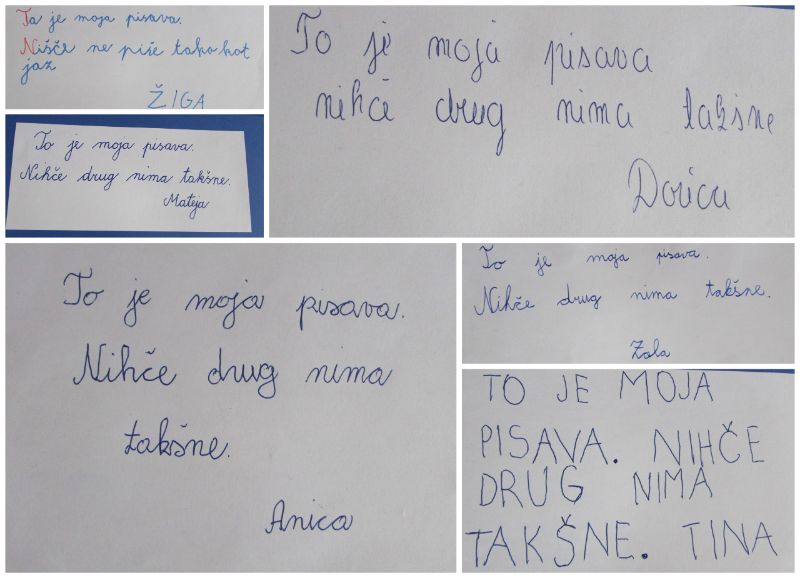 Ta je moja pisava.
Nišče ne piše tako kot
jaz
ŽIGA
To je moja pisava.
Nihče drug nima takšne.
Mateja
To je moja pisava
nihče drug nima takšne
Dorica
To je moja pisava.
Nihče drug nima takšne.
Zala
To je moja pisava.
Nihče drug nima
takšne.
Anica
TO JE MOJA
PISAVA. NIHČE
DRUG NIMA
TAKŠNE. TINA